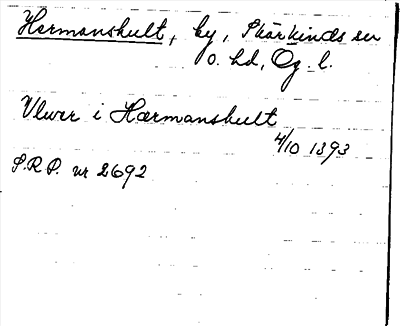 Hermanshult, by, Skärkinds sn
o. hd, Ög. l.
Vlwer i Hærmanshult
4/10 1393
S.R.P. nr 2692